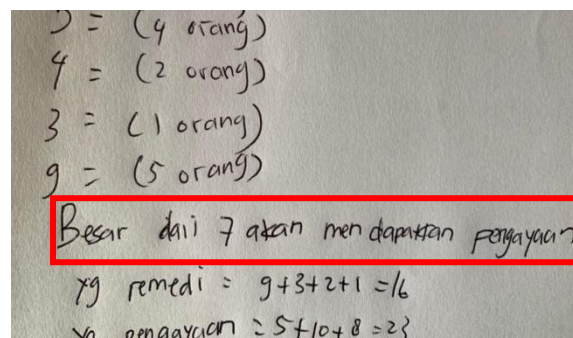 5 = (4 orang)
4 = (2 orang)
3 = (1 orang)
9 = (5 orang)
Besar dari 7 akan mendapatkan pengayaan
yg remedi = 9+3+2+1 =16
yg pengayaan = 5+10+8 = 23